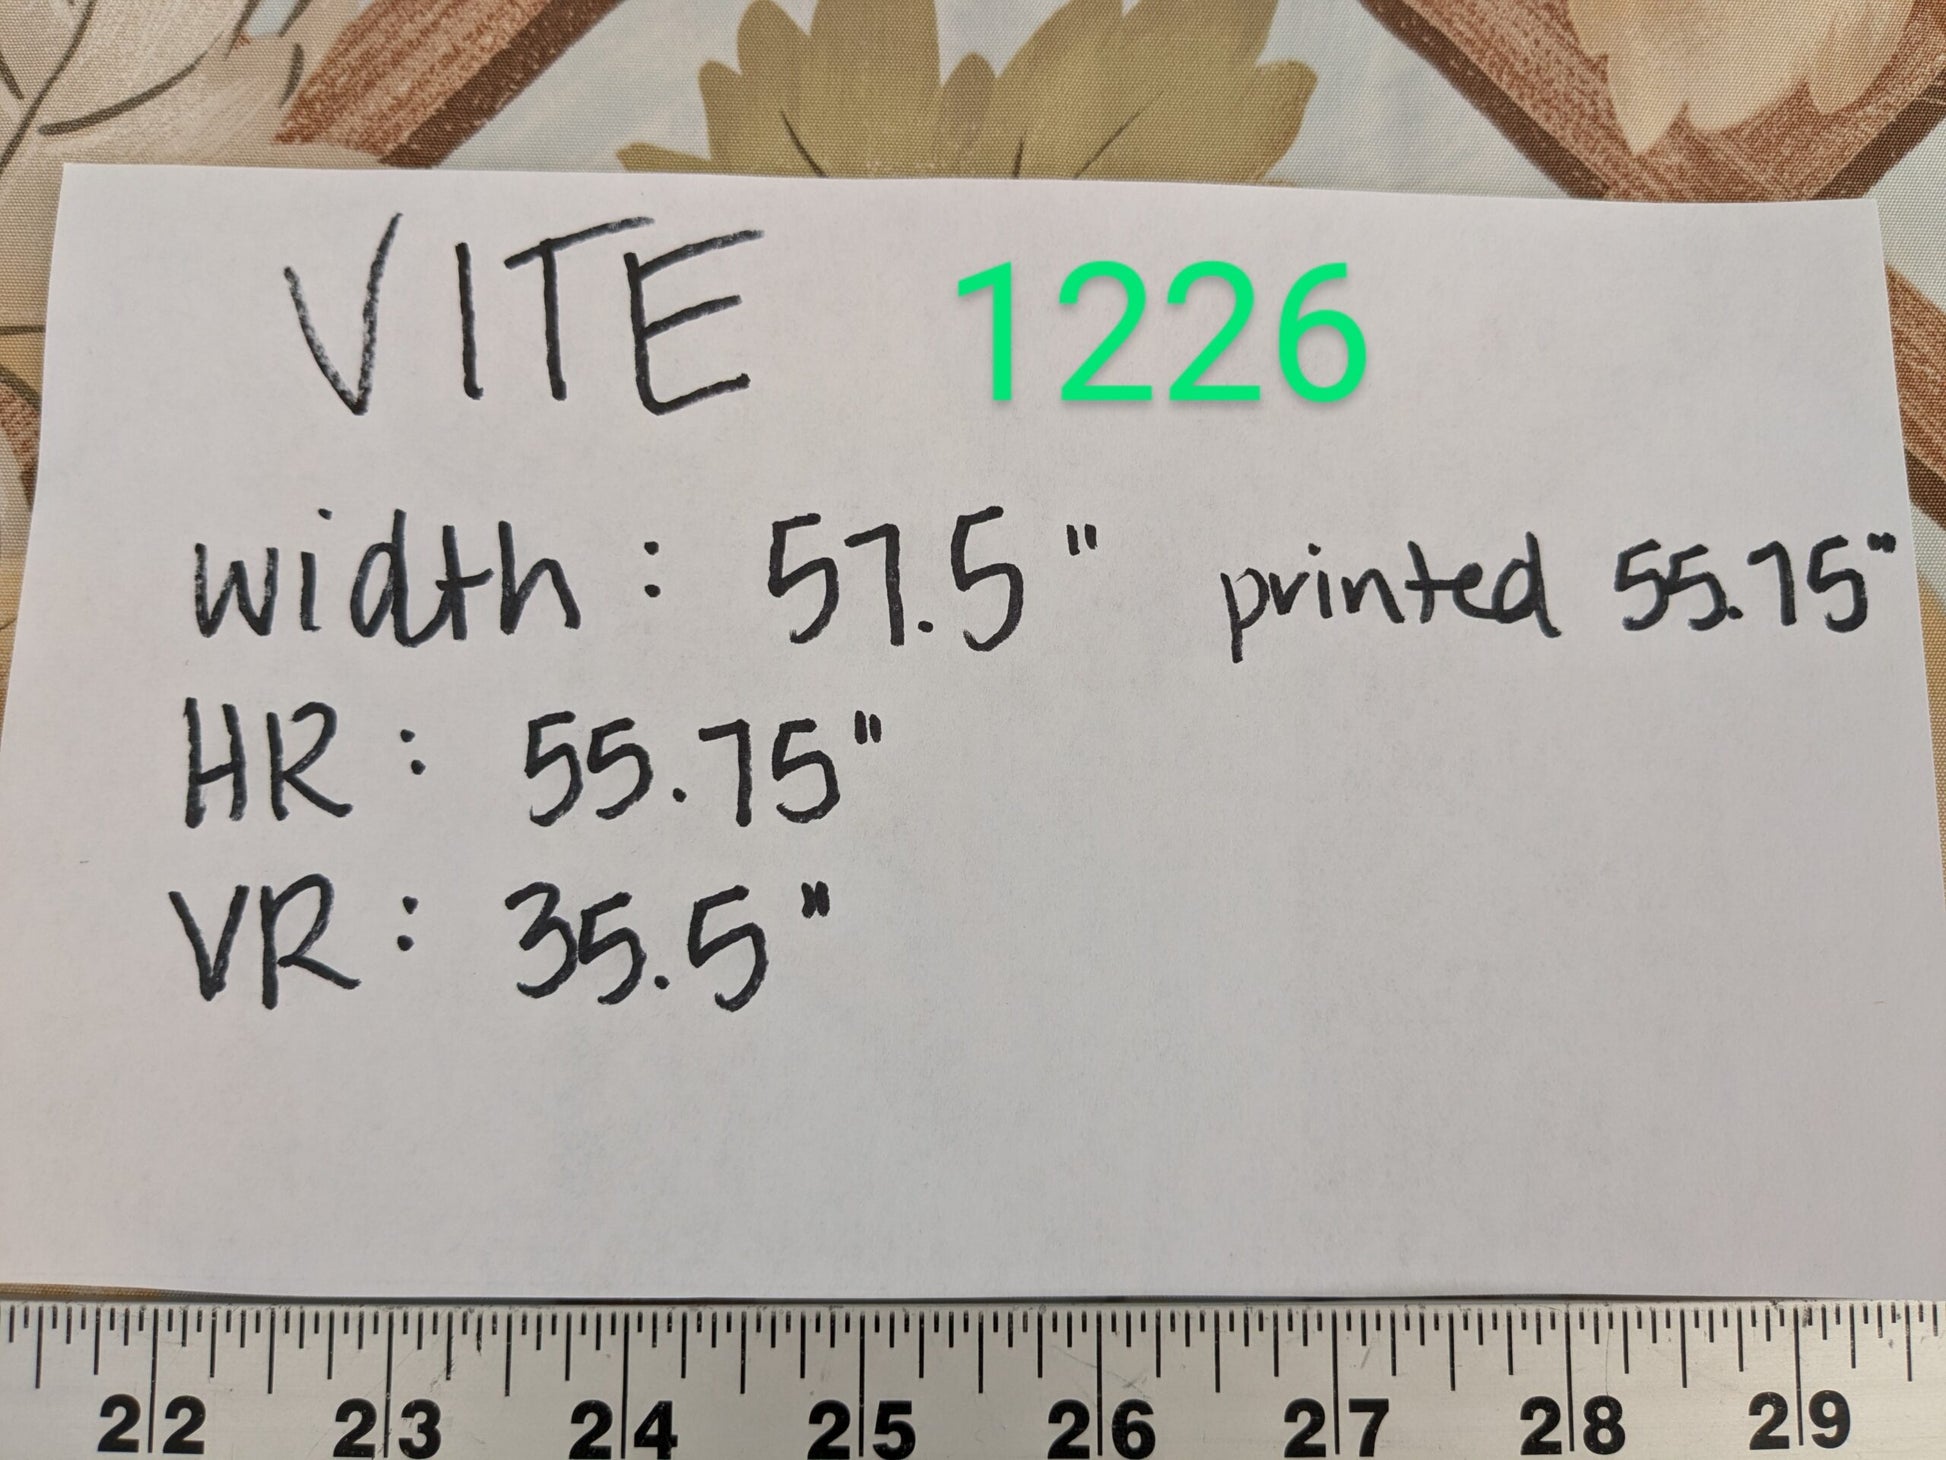 VITE 1226
width: 57.5" printed 55.75"
HR: 55.75"
VR: 35.5"
22 23 24 25 26 27 28 29